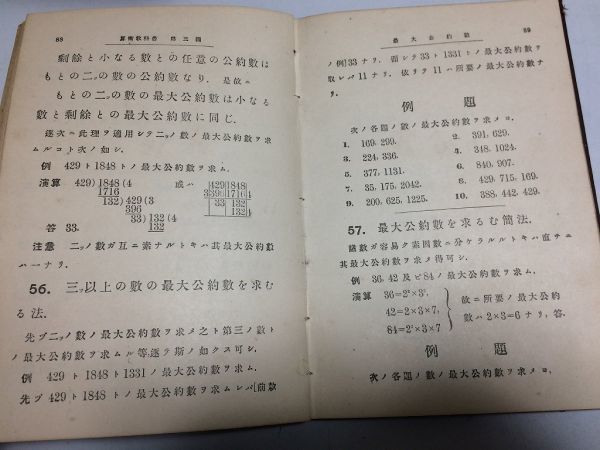 88 算術教科書 第三編
剩餘と小なる數との任意の公約數は
もとの二ッの數の公約數なり. 是故ニ
もとの二ッの數の最大公約數は小なる
數と剩餘との最大公約數に同じ.
逐次ニ此理ヲ適用シテ二ッノ數ノ最大公約數ヲ求
ムルコト次ノ如シ.
例 429ト1848トノ最大公約數ヲ求ム.
演算 429)1848(4 或ハ 429 1848
1716 3 396 1716 4
132)429(3 33 132
396 132 4
33)132(4
答 33. 132
注意 二ッノ數ガ互ニ素ナルトキハ其最大公約數
ハ一ナリ.
56. 三ッ以上の數の最大公約數を求む
る法.
先ヅ二ッノ數ノ最大公約數ヲ求メ之ト第三ノ數ト
ノ最大公約數ヲ求ムル等逐テ斯ノ如クス可シ.
例 429ト1848ト1331ノ最大公約數ヲ求ム.
先ヅ429ト1848トノ最大公約數ヲ求ムレバ(前款
最大公約數 89
ノ例)33ナリ. 而シテ33ト1331トノ最大公約數ヲ
取レバ11ナリ. 依リテ11ハ所要ノ最大公約數ナ
リ.
例題
次ノ各題ノ數ノ最大公約數ヲ求メヨ.
1. 169, 299. 2. 391, 629.
3. 224, 336. 4. 348, 1024.
5. 377, 1131. 6. 840, 907.
7. 35, 175, 2042. 8. 429, 715, 169.
9. 200, 625, 1225. 10. 388, 442, 429.
57. 最大公約數を求るむ簡法.
諸數ガ容易ク素因數ニ分ケラルルトキハ直チニ
其最大公約數ヲ求メ得可シ.
例 36, 42及ビ84ノ最大公約數ヲ求ム.
演算 36=2²×3²,
42=2×3×7, 故ニ所要ノ最大公約
84=2²×3×7 數ハ2×3=6ナリ, 答.
例題
次ノ各題ノ數ノ最大公約數ヲ求メヨ.